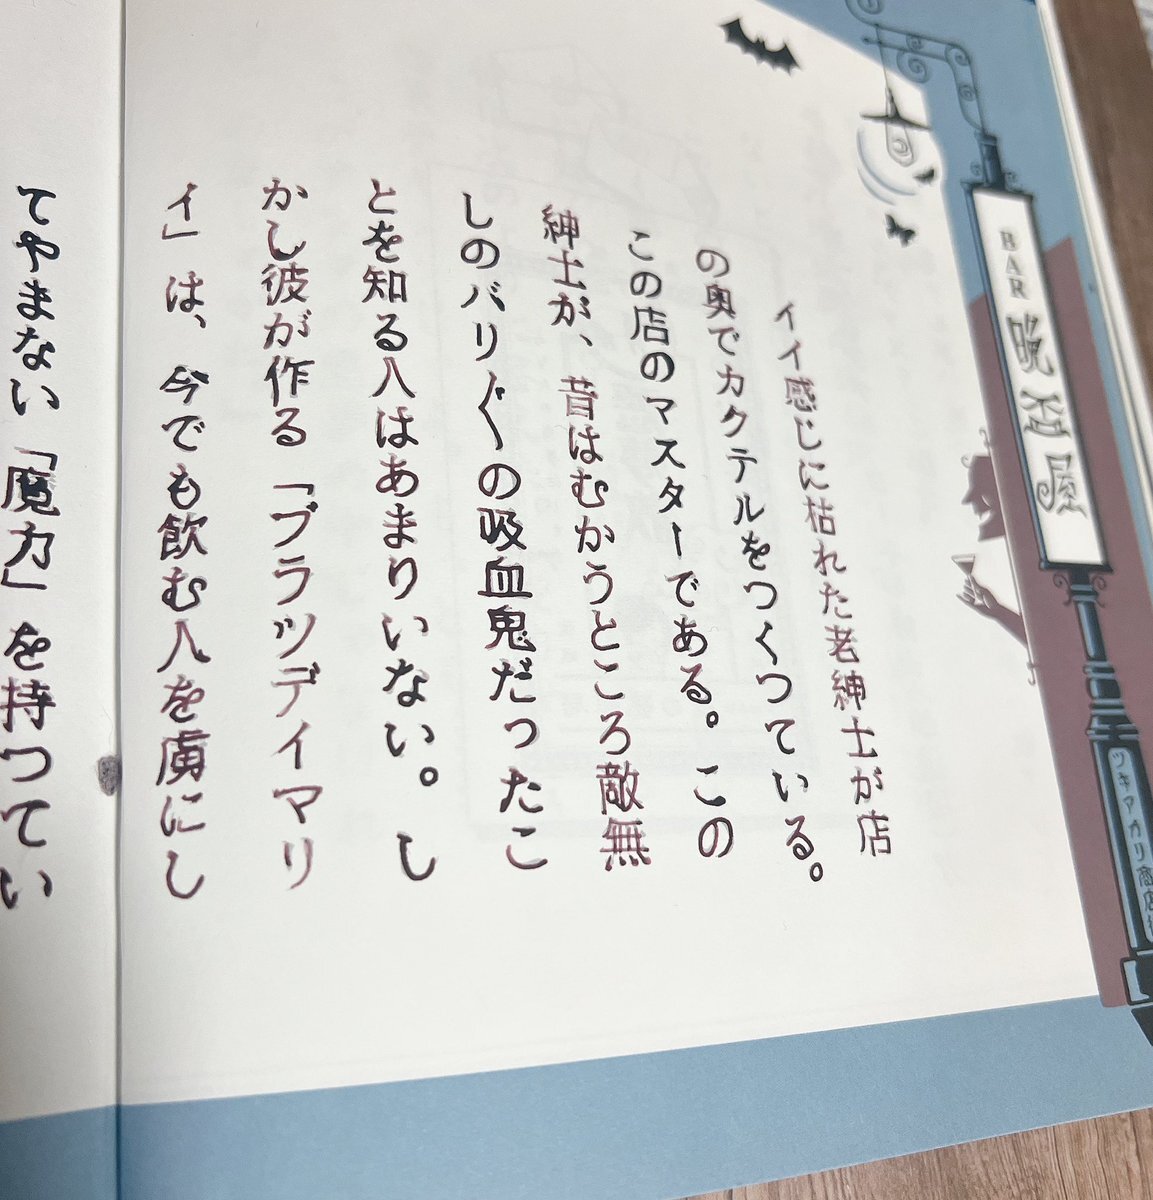 イイ感じに枯れた老紳士が店
の奥でカクテルをつくっている。
この店のマスターである。この
紳士が、昔はむかうところ敵無
しのバリバリの吸血鬼だったこ
とを知る人はあまりいない。し
かし彼が作る「ブラッディマリ
ィ」は、今でも飲む人を虜にし
てやまない「魔力」を持ってい
BAR 晩盃屋
ツキアカリ商店街